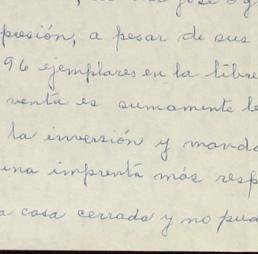 presión, a pesar de sus
96 ejemplares en la libre
venta es sumamente le
la inversión y manda
una imprenta más resp
a casa cerrada y no pud